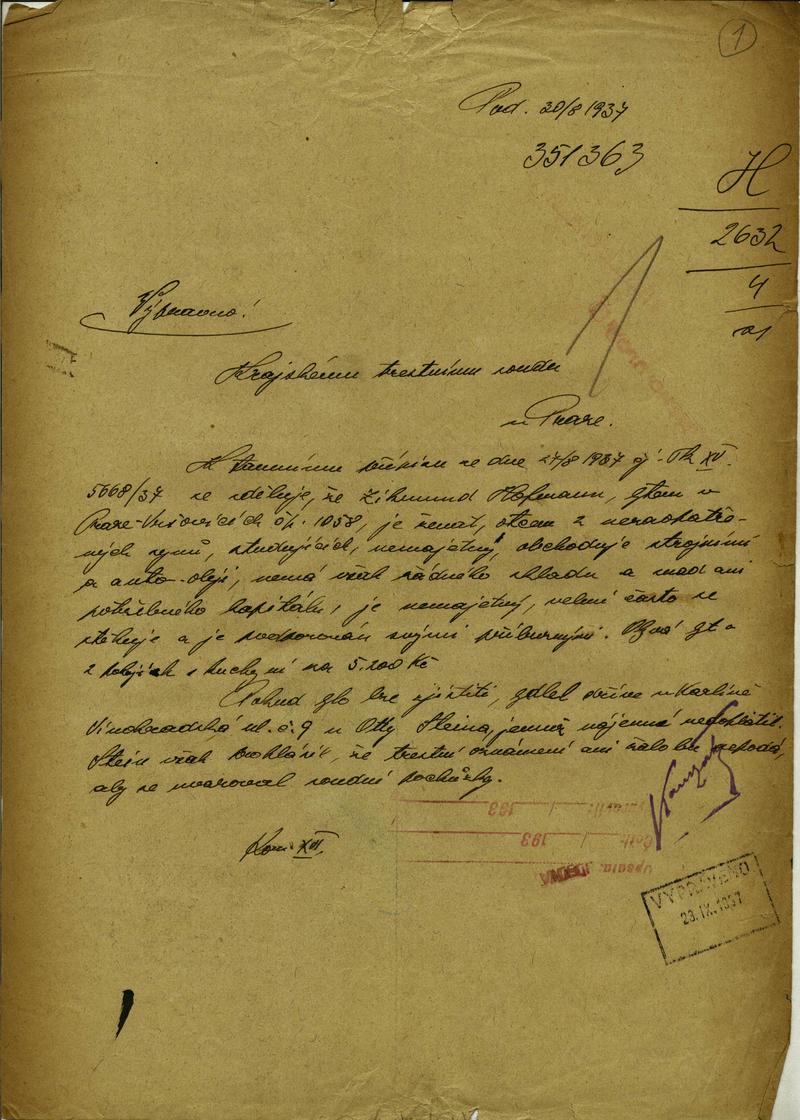 1
Pod. 30/8 1937
351363
H
2632
4
Výpravno!
Krajskému trestnímu soudu
v Praze.
K tamnímu přípisu ze dne 27/8 1937 čj. Tk XV.
5668/37 se sděluje, že Zikmund Hofmann, bytem v
Praze-Vršovicích čp. 1058, je ženat, otcem 2 nezaopatře-
ných synů, studujících, nemajetný, obchoduje strojními
a auto-oleji, nemá však žádného skladu a snad ani
potřebného kapitálu, je nemajetný, velmi často se
stěhuje a je podporován svými příbuznými. Obývá byt o
2 pokojích s kuchyní za 5.200 Kč
Pokud bylo lze zjistiti, bydlel dříve v Karlíně
Vinohradská ul. č. 9 u Otty Steina, jemuž nájemné nedoplatil.
Stein však prohlásil, že trestní oznámení ani žalobu nepodá,
aby se uvaroval soudní pochůzky.
Kom XVI.
193
193
Četl:
Vypsala:
VYPRAVENO
28.IX.1937